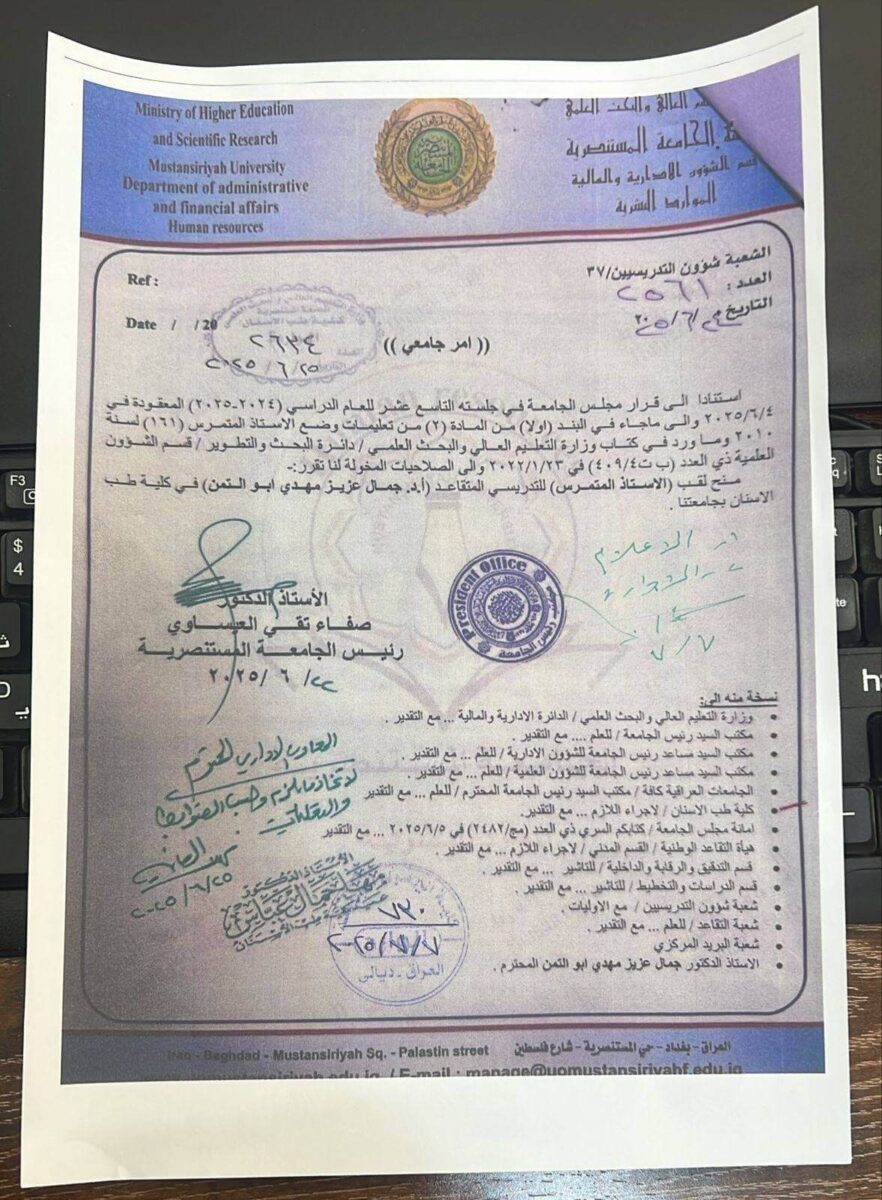 Ministry of Higher Education
and Scientific Research
Mustansiriyah University
Department of administrative
and financial affairs
Human resources
العالي والبحث العلمي
الجامعة المستنصرية
قسم الشؤون الادارية والمالية
الموارد البشرية
الشعبة شؤون التدريسيين/٣٧
العدد : ٢٥٦١
التاريخ
Ref :
Date / / 20
كلية طب الاسنان
العدد ٢٦٣٤
٢٠٢٥/٦/٢٥
(( امر جامعي ))
أستنادا الى قرار مجلس الجامعة في جلسته التاسع عشر للعام الدراسي (٢٠٢٤-٢٠٢٥) المعقودة في
٢٠٢٥/٦/٤ والى ماجاء في البند (اولا) من المادة (٢) من تعليمات وضع الاستاذ المتمرس (١٦١) لسنة
٢٠١٠ وما ورد في كتاب وزارة التعليم العالي والبحث العلمي / دائرة البحث والتطوير / قسم الشؤون
العلمية ذي العدد (ب ت٤٠٩/٤) في ٢٠٢٢/١/٢٣ والى الصلاحيات المخولة لنا تقرر:-
منح لقب (الاستاذ المتمرس) للتدريسي المتقاعد (أ.د. جمال عزيز مهدي ابو التمن) في كلية طب
الاسنان بجامعتنا .
President Office
رئيس الجامعة
٧/٧
الأستاذ الدكتور
صفاء تقي العيساوي
رئيس الجامعة المستنصرية
٢٢/ ٦ /٢٠٢٥
المعاون الاداري المحترم
٢٠٢٥/٦/٢٥
الأستاذ الدكتور
٧٣٠
٢٠٢٥/٧/٧
العراق - ديالى
نسخة منه الى:
• وزارة التعليم العالي والبحث العلمي / الدائرة الادارية والمالية ... مع التقدير .
• مكتب السيد رئيس الجامعة / للعلم .... مع التقدير .
• مكتب السيد مساعد رئيس الجامعة للشؤون الادارية / للعلم ... مع التقدير .
• مكتب السيد مساعد رئيس الجامعة للشؤون العلمية / للعلم ... مع التقدير .
• الجامعات العراقية كافة / مكتب السيد رئيس الجامعة المحترم / للعلم ... مع التقدير
• كلية طب الاسنان / لاجراء اللازم ... مع التقدير.
• امانة مجلس الجامعة / كتابكم السري ذي العدد (مج/٢٤٨٢) في ٢٠٢٥/٦/٥ ... مع التقدير
• هيأة التقاعد الوطنية / القسم المدني / لاجراء اللازم ... مع التقدير .
• قسم التدقيق والرقابة والداخلية / للتاشير ... مع التقدير .
• قسم الدراسات والتخطيط / للتأشير ... مع التقدير .
• شعبة شؤون التدريسيين / مع الاوليات .
• شعبة التقاعد / للعلم ... مع التقدير .
• شعبة البريد المركزي
• الاستاذ الدكتور جمال عزيز مهدي ابو التمن المحترم .
العراق - بغداد - حي المستنصرية - شارع فلسطين
Iraq - Baghdad - Mustansiriyah Sq. - Palastin street
/ E-mail : manage@uomustansiriyahf.edu.iq